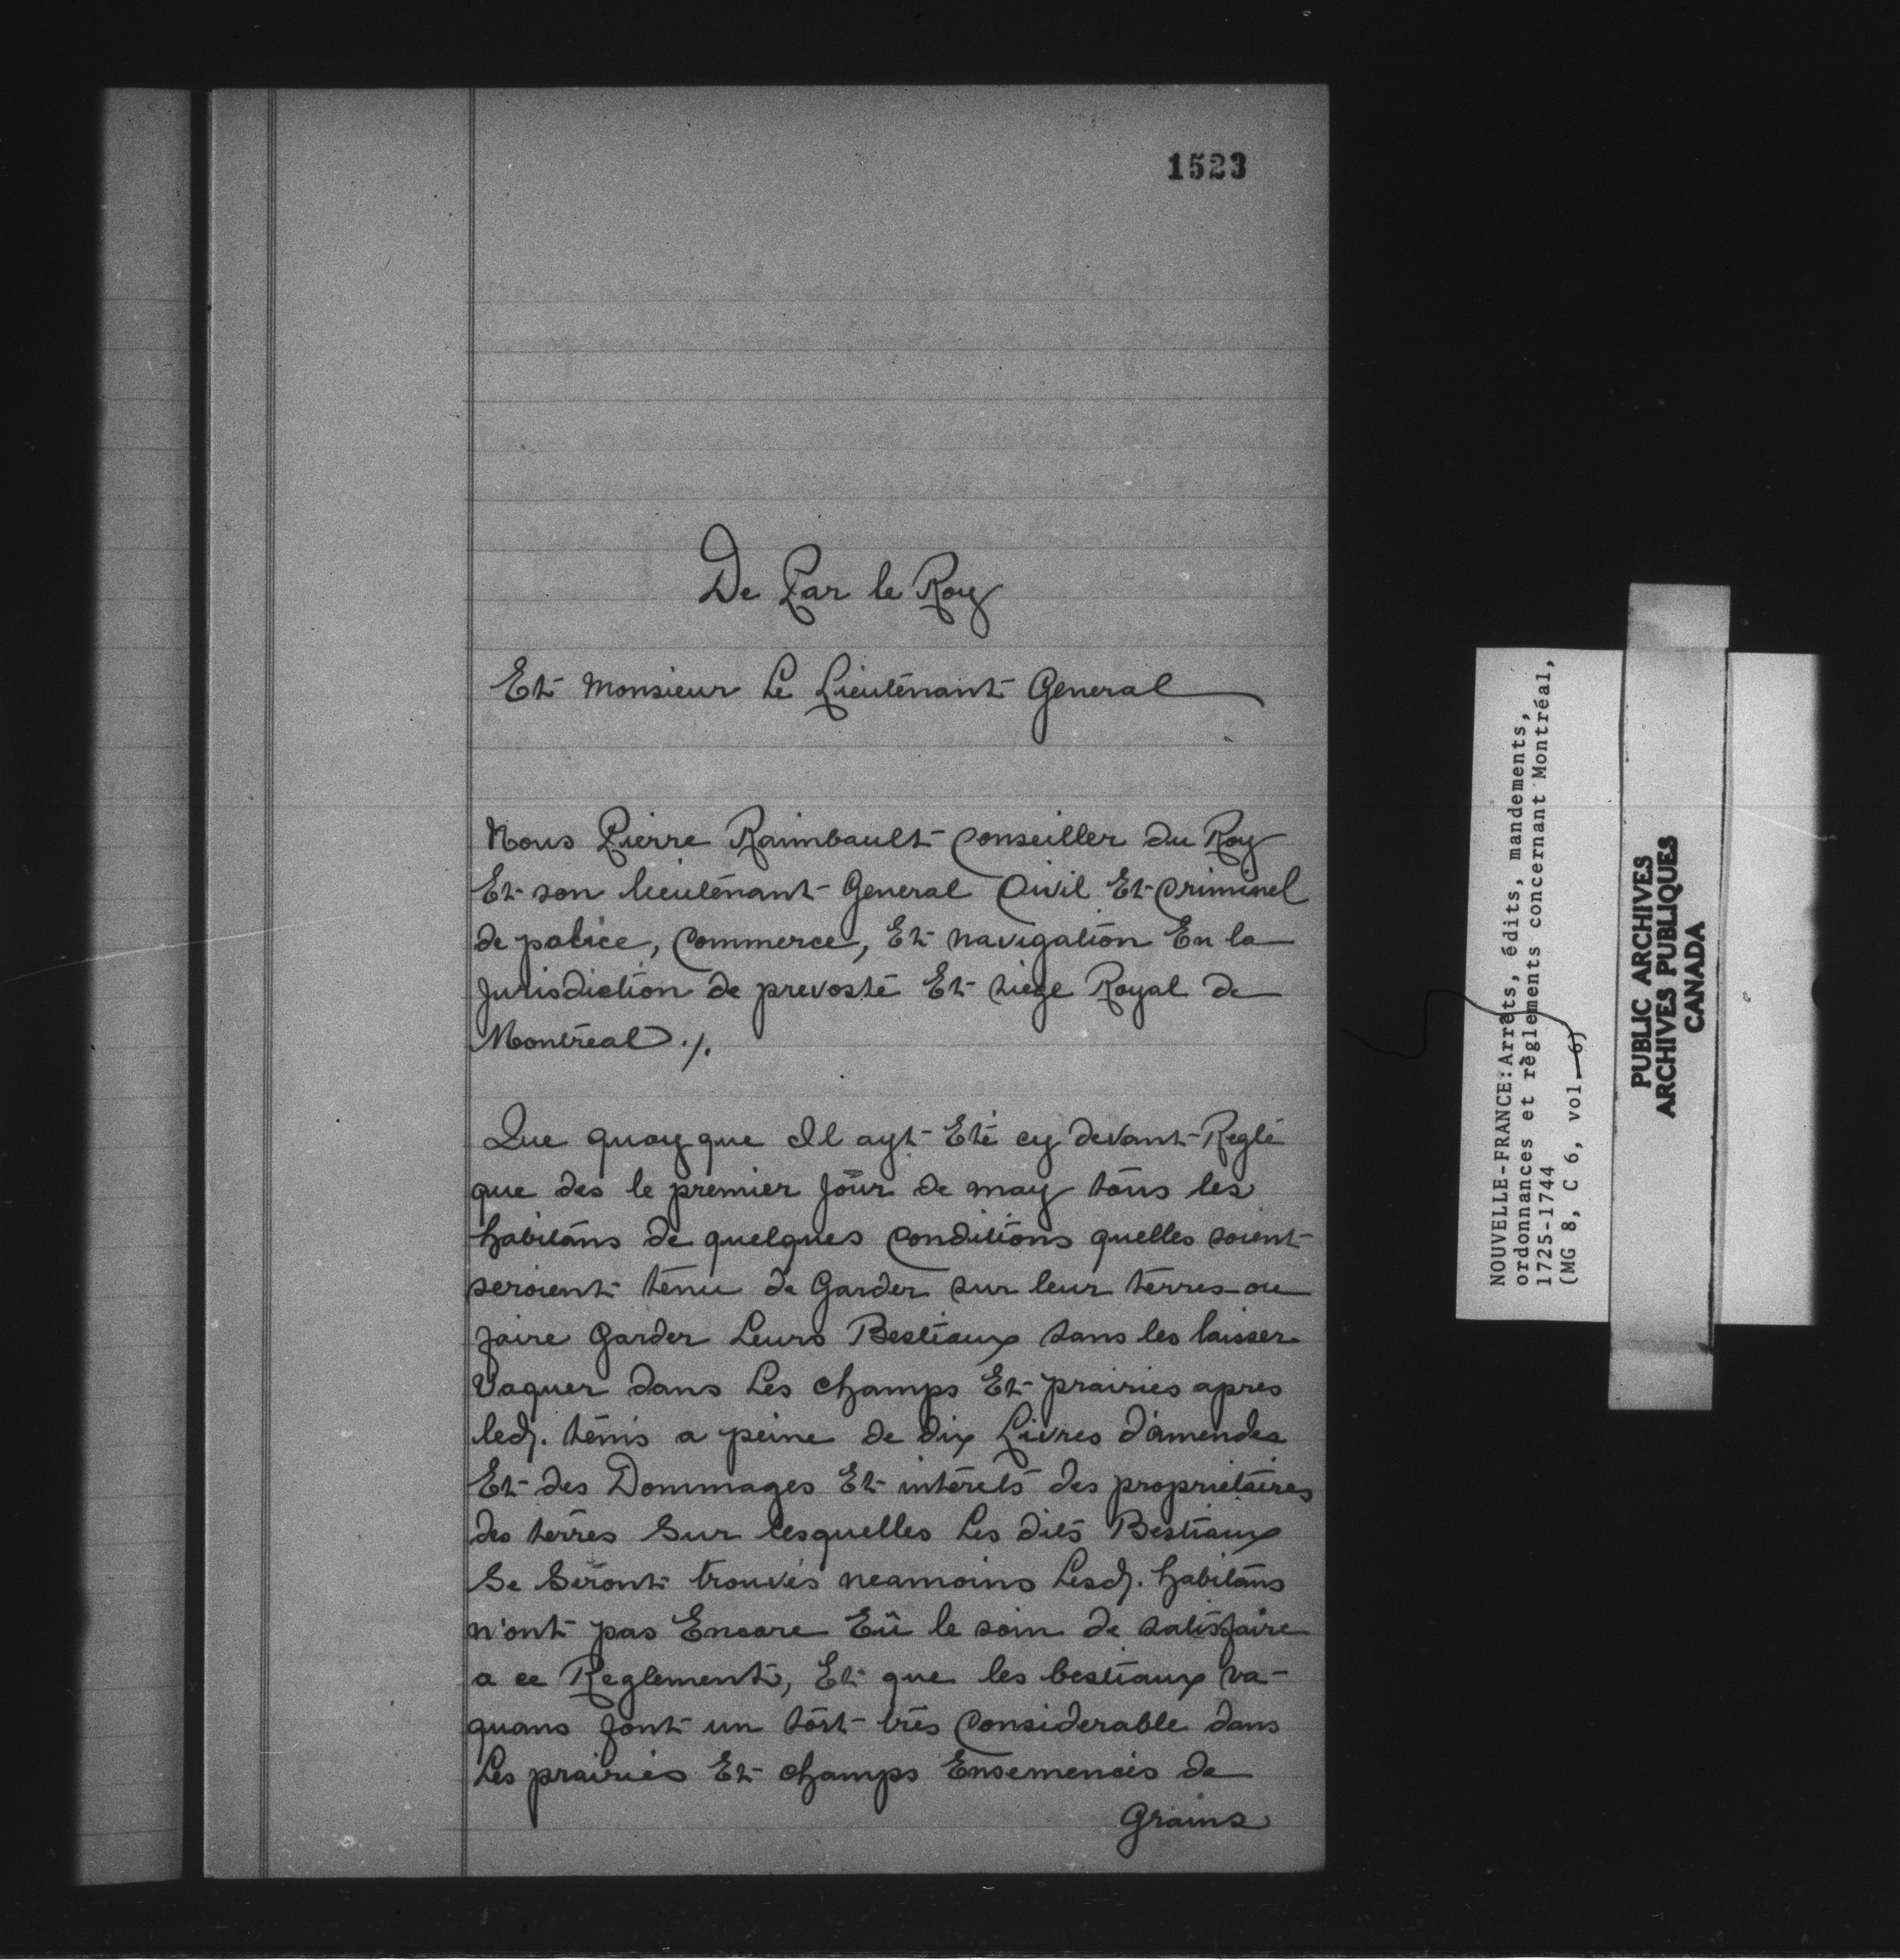 1523
De Par le Roy
Et Monsieur Le Lieutenant General
Nous Pierre Raimbault Conseiller du Roy
Et son lieutenant General Civil Et Criminel
de police, Commerce, Et navigation En la
Jurisdiction de prevosté Et siege Royal de
Montréal ./.
Que quoyque Il ayt Eté cy devant Reglé
que des le premier Jour de may tous les
habitans de quelques Conditions quelles soient
seroient tenu de Garder sur leur terres ou
faire Garder Leurs Bestiaux sans les laisser
Vaquer dans Les champs Et prairies apres
led. tems a peine de dix Livres d'amendes
Et des Dommages Et intérets des propriétaires
des terres Sur lesquelles Les dits Bestiaux
Se Seront trouvés neamoins Lesd. habitans
n'ont pas Encore Eû le soin de satisfaire
a ce Reglement, Et que les bestiaux va-
quans font un tort très Considerable dans
Les prairies Et champs Ensemencés de
Grains
NOUVELLE-FRANCE: Arrêts, édits, mandements,
ordonnances et règlements concernant Montréal,
1725-1744
(MG 8, C 6, vol 6)
PUBLIC ARCHIVES
ARCHIVES PUBLIQUES
CANADA